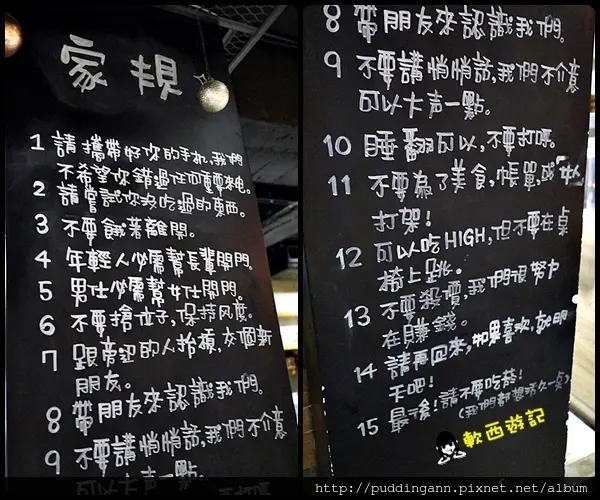 家規
1 請攜帶好你的手机,我們
不希望你錯過任何重要來电。
2 請嘗試你沒吃過的東西。
3 不要餓著離開。
4 年輕人必需幫長輩開門。
5 男仕必需幫女仕開門。
6 不要搶位子,保持风度。
7 跟帝鈕的人抬槓,交個新
朋友。
8 帶朋友來認識我們。
9 不要講悄悄話,我們不介意
可以大声一點。
8 帶朋友來認識我們。
9 不要講悄悄話,我們不介意
可以大声一點。
10 睡翻可以,不要打呼。
11 不要為了美食,帳單,或女人
打架!
12 可以吃HIGH,但不要在桌
椅上跳。
13 不要殺價,我們很努力
在賺錢。
14 請再回來,如果喜欢,就明
天吧!
15 最後!請不要吃菸!
(我們都想活久一点)
軟西遊記
http://puddingann.pixnet.net/album